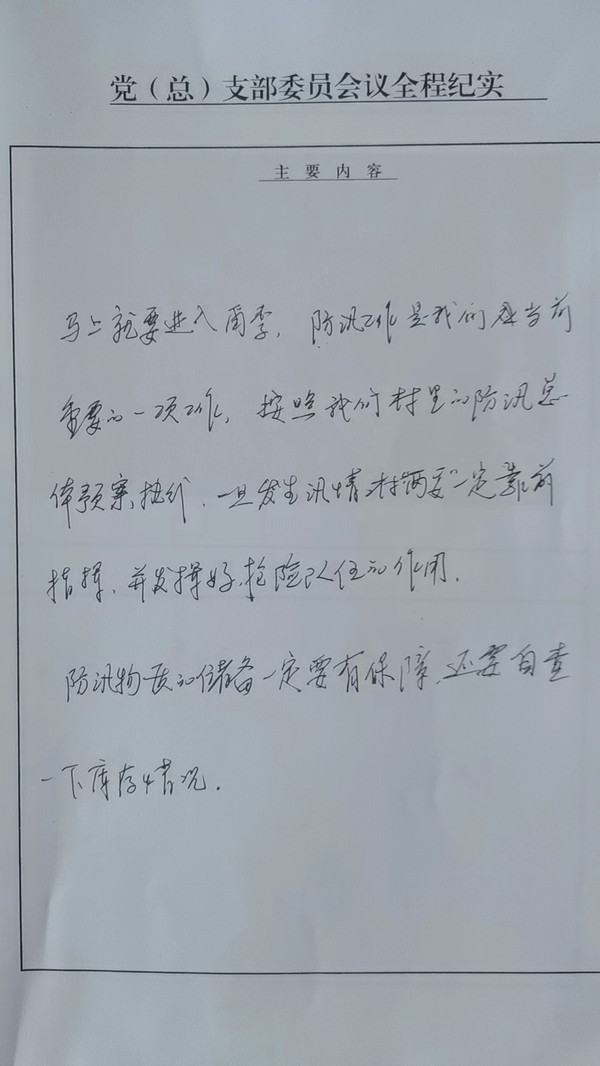 党（总）支部委员会议全程纪实
主要内容
马上就要进入雨季，防汛工作是我们当前
重要的一项工作，按照我们村里的防汛总
体预案执行，一旦发生汛情，村"两委"一定靠前
指挥，并发挥好抢险队伍的作用。
防汛物资的储备一定要有保障，还要自查
一下库存情况。